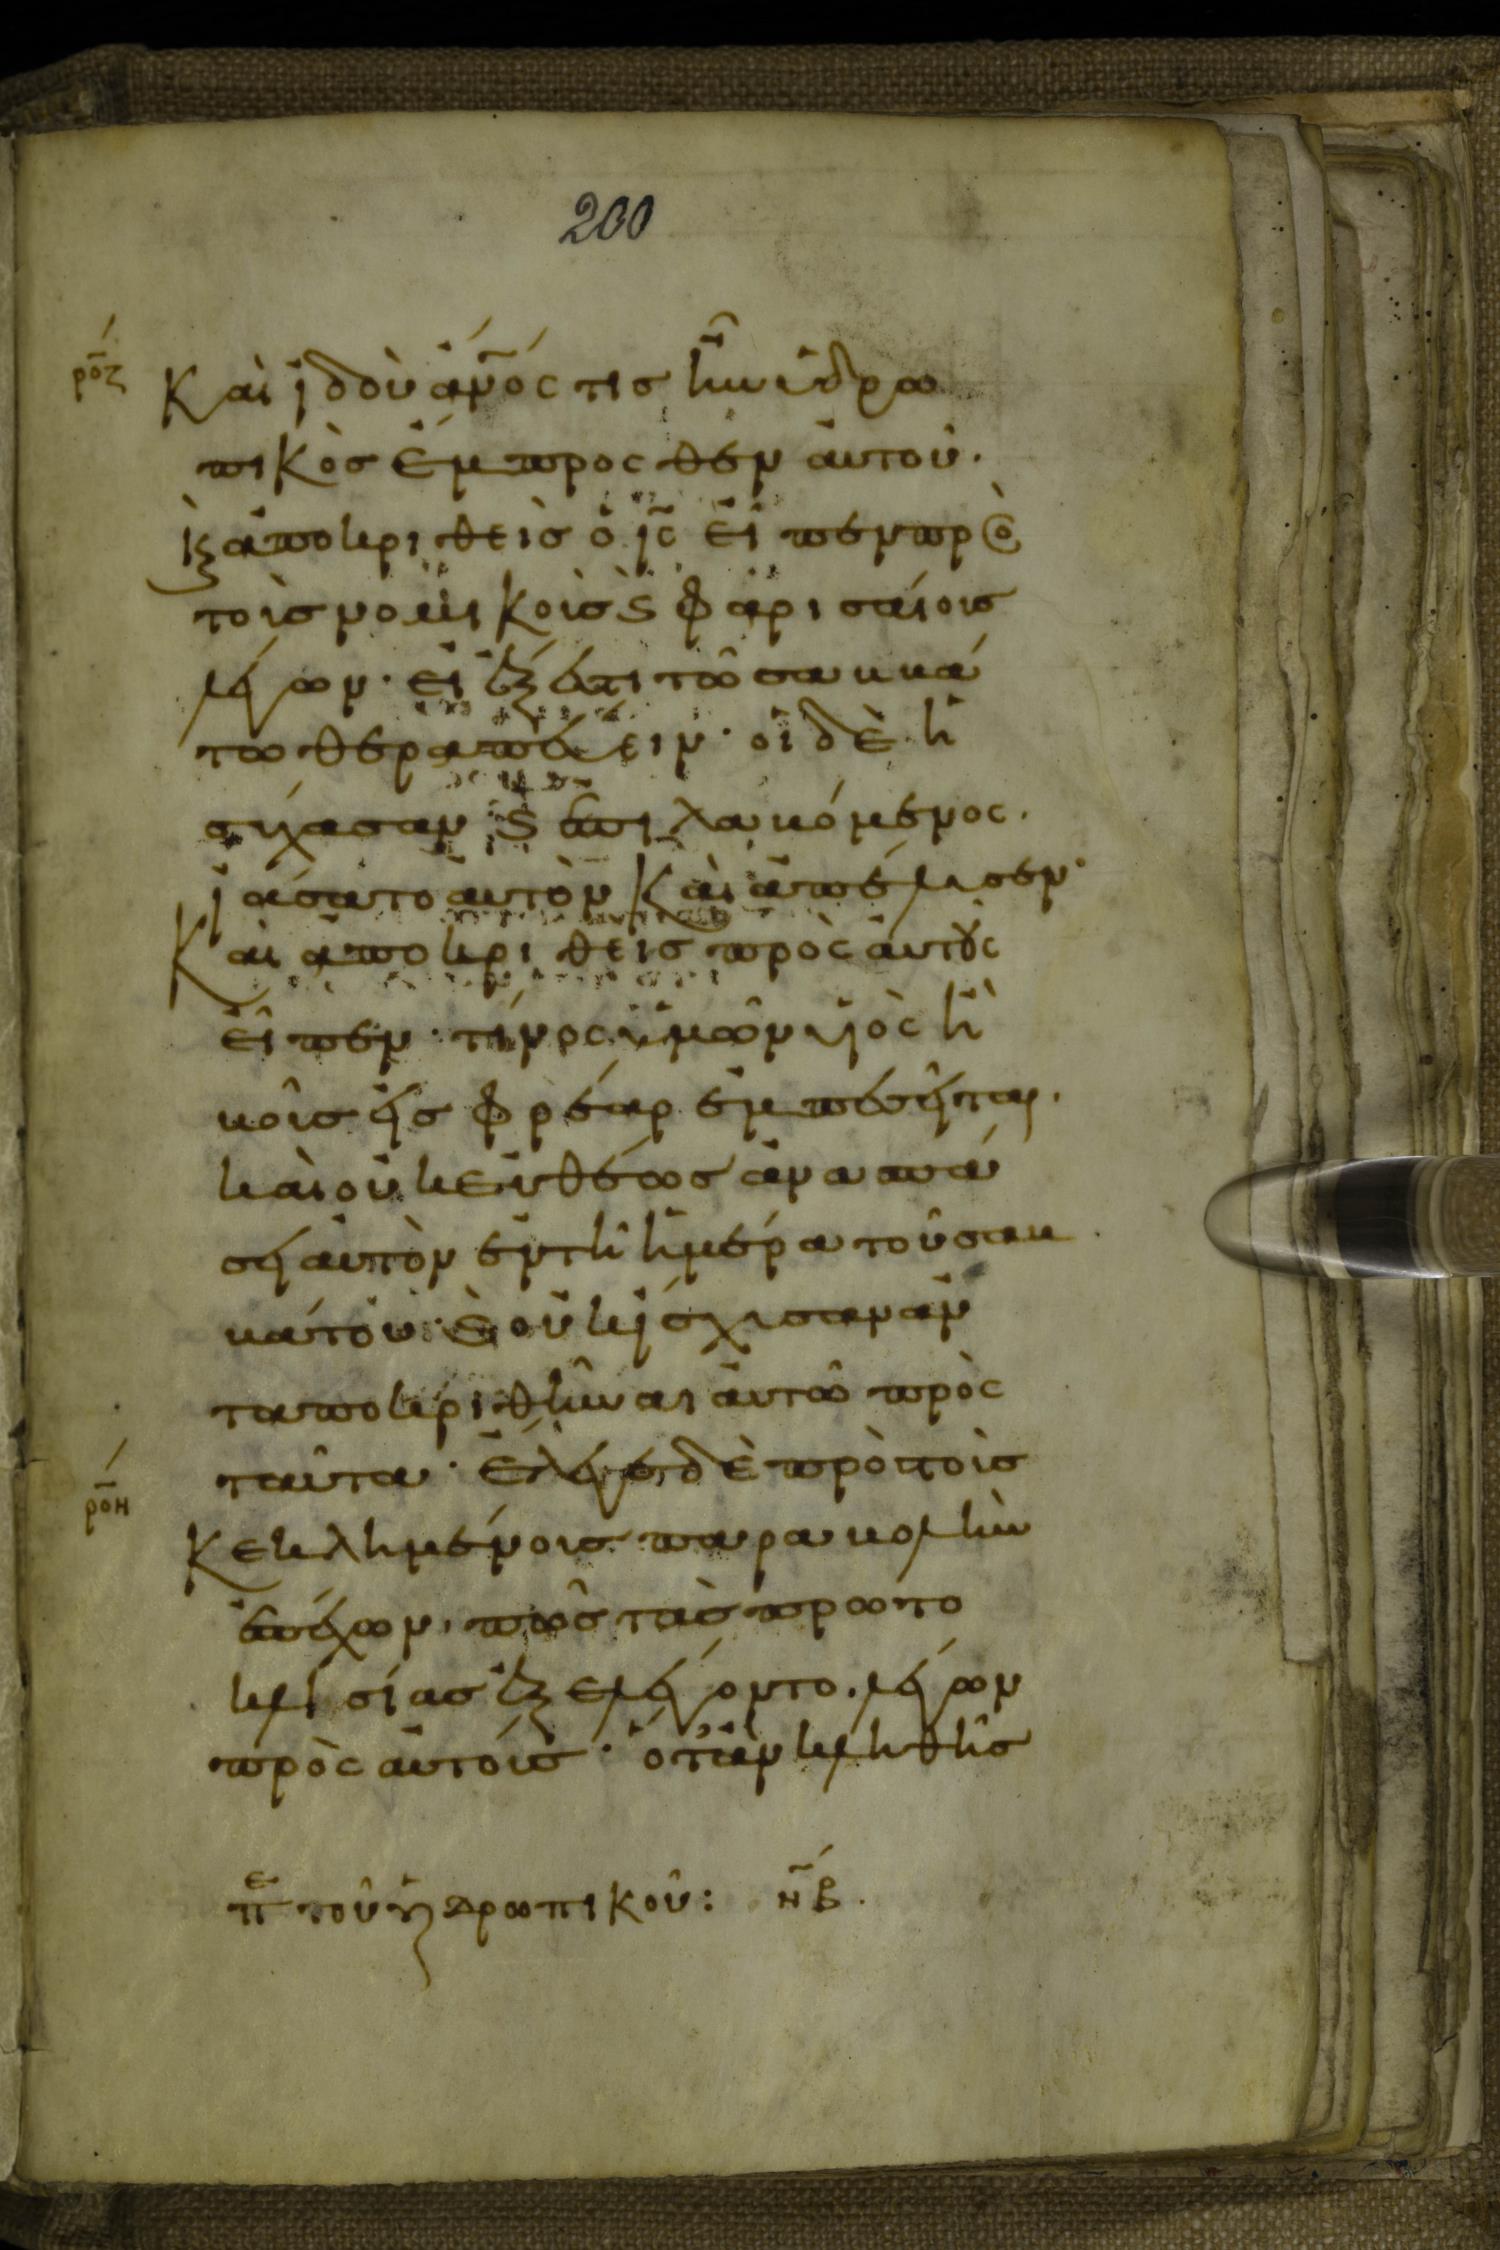 200
ρο̄ζ
Καὶ ἰδοὺ ἄν̅ός τισ ἦν ὑδρω
πικὸσ ἔμπροςθεν αὐτοῦ.
κ̀ ἀποκριθεὶσ ὁ ις̅ εἶπεν πρὸ
τοὶσ νομικοὶσ ϛ̀ φαρισαίοισ
λέγων· εἰ ἔξεστι τῶ σαββά
τω θεραπέυειν· οἱ δὲ ἡ
σύχασαν ϛ ἐπιλαβόμενος.
ἰάσατο αὐτὸν καὶ ἀπέλυσεν·
Καὶ ἀποκριθεισ πρὸς ἀυτοὺς
εἶπεν· τίνος ὑμῶν υἱὸς ἢ
βοῦσ εἰσ φρέαρ ἐμπέσῆται.
καὶ οὐκ ἐυθέωσ ἀνασπά
σει ἀυτὸν ἐν τῆ ἡμέρα τοῦ σαβ
βάτου· ϛ̀ οὐκ ἴσχυσαν ἀν
ταποκριθῆναι ἀυτῶ πρὸς
ταῦτα· ἔλεγε δὲ πρὸς τοὺσ
ρο̄η
Κεκλημένοισ παραβολὴν
ἐπέχων, πῶσ τὰσ πρωτο
κλισίασ ἐξελέγοντο. λέγων
πρὸς ἀυτόυσ· ὅταν κληθῆσ
πε̅ τοῦ ὑδρωπικοῦ: ν̅β.